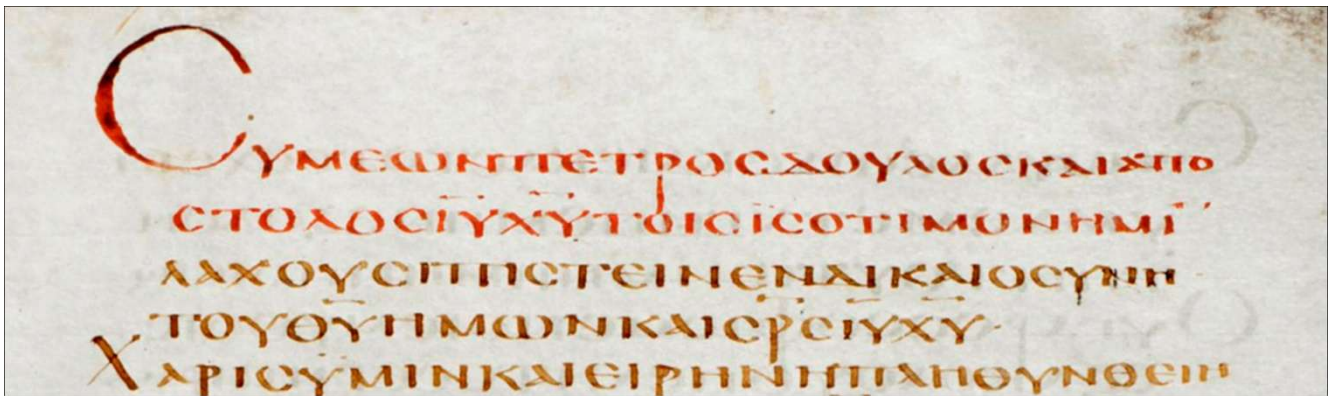 CΥΜΕΩΝΠΕΤΡΟCΔΟΥΛΟCΚΑΙΑΠΟ
CΤΟΛΟCΙ̅Υ̅Χ̅Υ̅ΤΟΙCΪCΟΤΙΜΟΝΗΜΙ̅
ΛΑΧΟΥCΙΠΙCΤΕΙΝΕΝΔΙΚΑΙΟCΥΝΗ
ΤΟΥΘ̅Υ̅ΗΜΩΝΚΑΙC̅Ρ̅C̅Ι̅Υ̅Χ̅Υ̅·
ΧΑΡΙCΫΜΙΝΚΑΙΕΙΡΗΝΗΠΛΗΘΥΝΘΕΙΗ